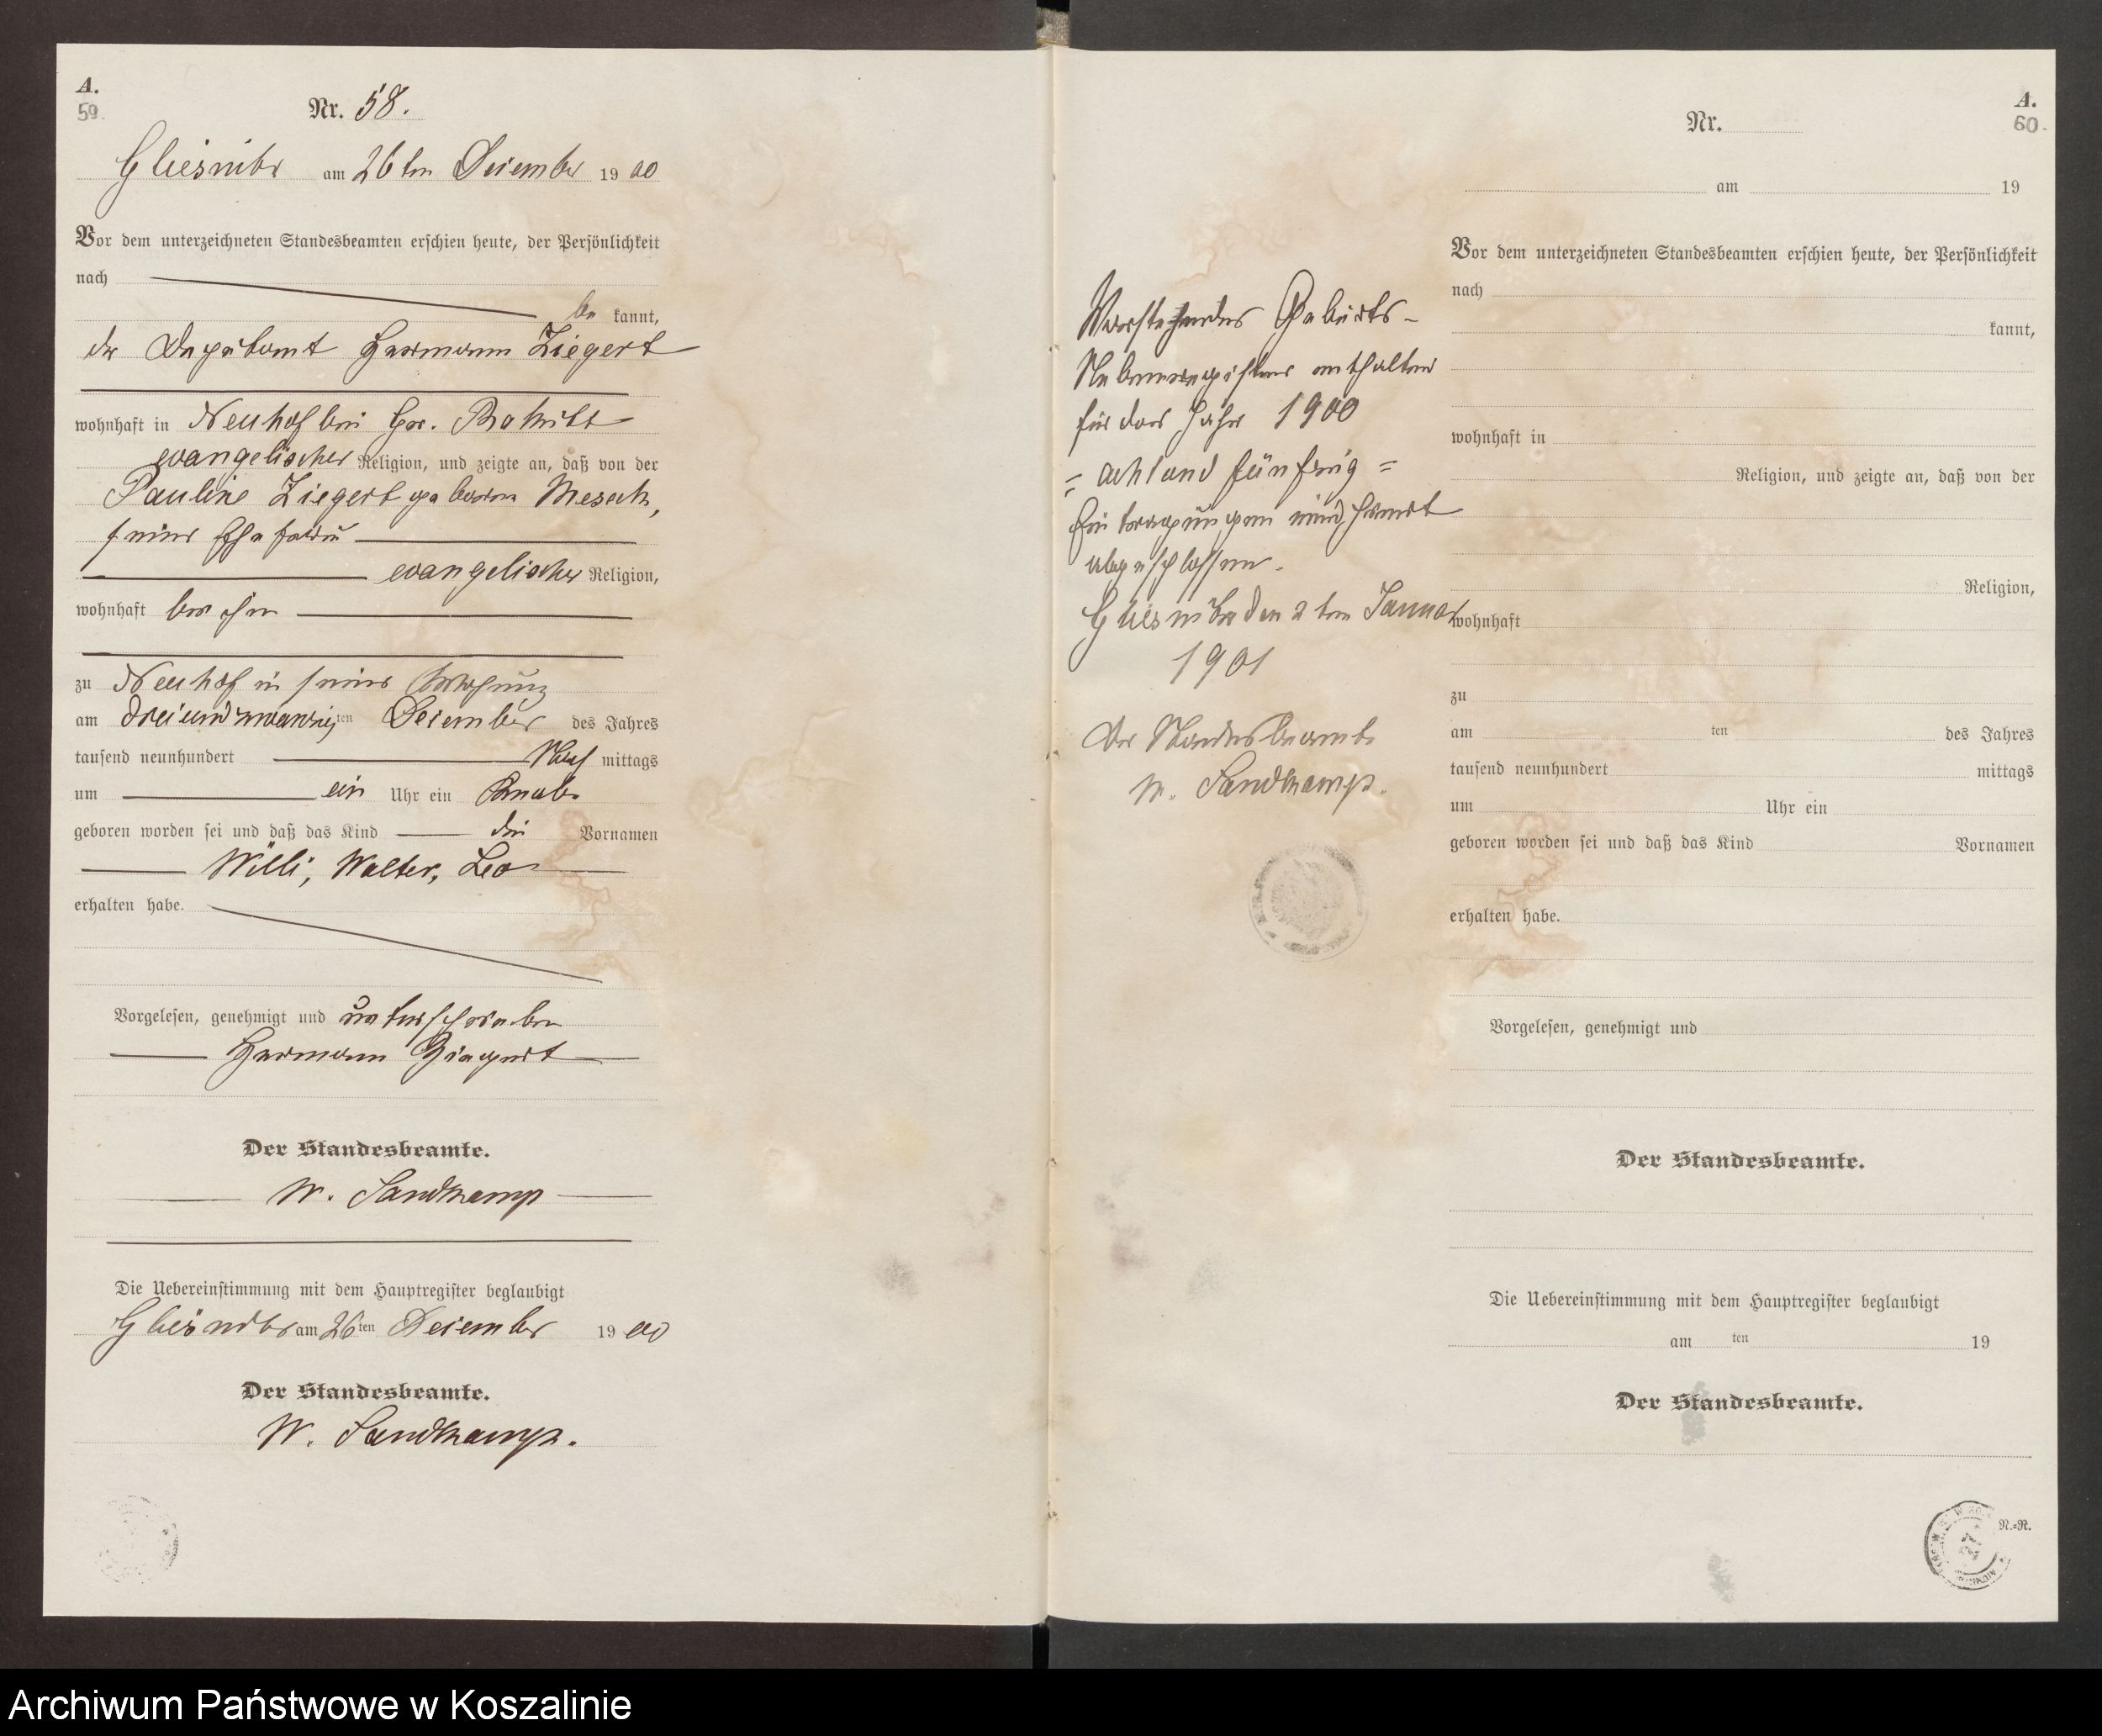 A.
59.
Nr. 58.
Gliesnitz am 26ten Dezember 1900
Vor dem unterzeichneten Standesbeamten erschien heute, der Persönlichkeit
nach
be kannt,
der Deputant Hermann Ziegert
wohnhaft in Neuhof bei Gr.
evangelischer Religion, und zeigte an, daß von der
Pauline Ziegert geboren Mesech,
seiner Ehefrau
evangelischer Religion,
wohnhaft bei ihm
zu Neuhof in seiner Wohnung
am dreiundzwanzigten Dezember des Jahres
tausend neunhundert Nach mittags
um ein Uhr ein Knabe
geboren worden sei und daß das Kind die Vornamen
Willi, Walter, Leo
erhalten habe.
Vorgelesen, genehmigt und unterschrieben
Hermann Ziegert
Der Standesbeamte.
W. Sandkamp
Die Uebereinstimmung mit dem Hauptregister beglaubigt
Gliesnitz am 26ten Dezember 1900
Der Standesbeamte.
W. Sandkamp.
Vorstehendes Geburts-
Nebenregister enthaltend
für das Jahr 1900
= achtund fünfzig =
Eintragungen wird hiermit
abgeschlossen.
Gliesnitz den 2ten Januar
1901
Der Standesbeamte
W. Sandkamp.
A.
60.
Nr.
am 19
Vor dem unterzeichneten Standesbeamten erschien heute, der Persönlichkeit
nach
kannt,
wohnhaft in
Religion, und zeigte an, daß von der
Religion,
wohnhaft
zu
am ten des Jahres
tausend neunhundert mittags
um Uhr ein
geboren worden sei und daß das Kind Vornamen
erhalten habe.
Vorgelesen, genehmigt und
Der Standesbeamte.
Die Uebereinstimmung mit dem Hauptregister beglaubigt
am ten 19
Der Standesbeamte.
N.=R.
27
Archiwum Państwowe w Koszalinie